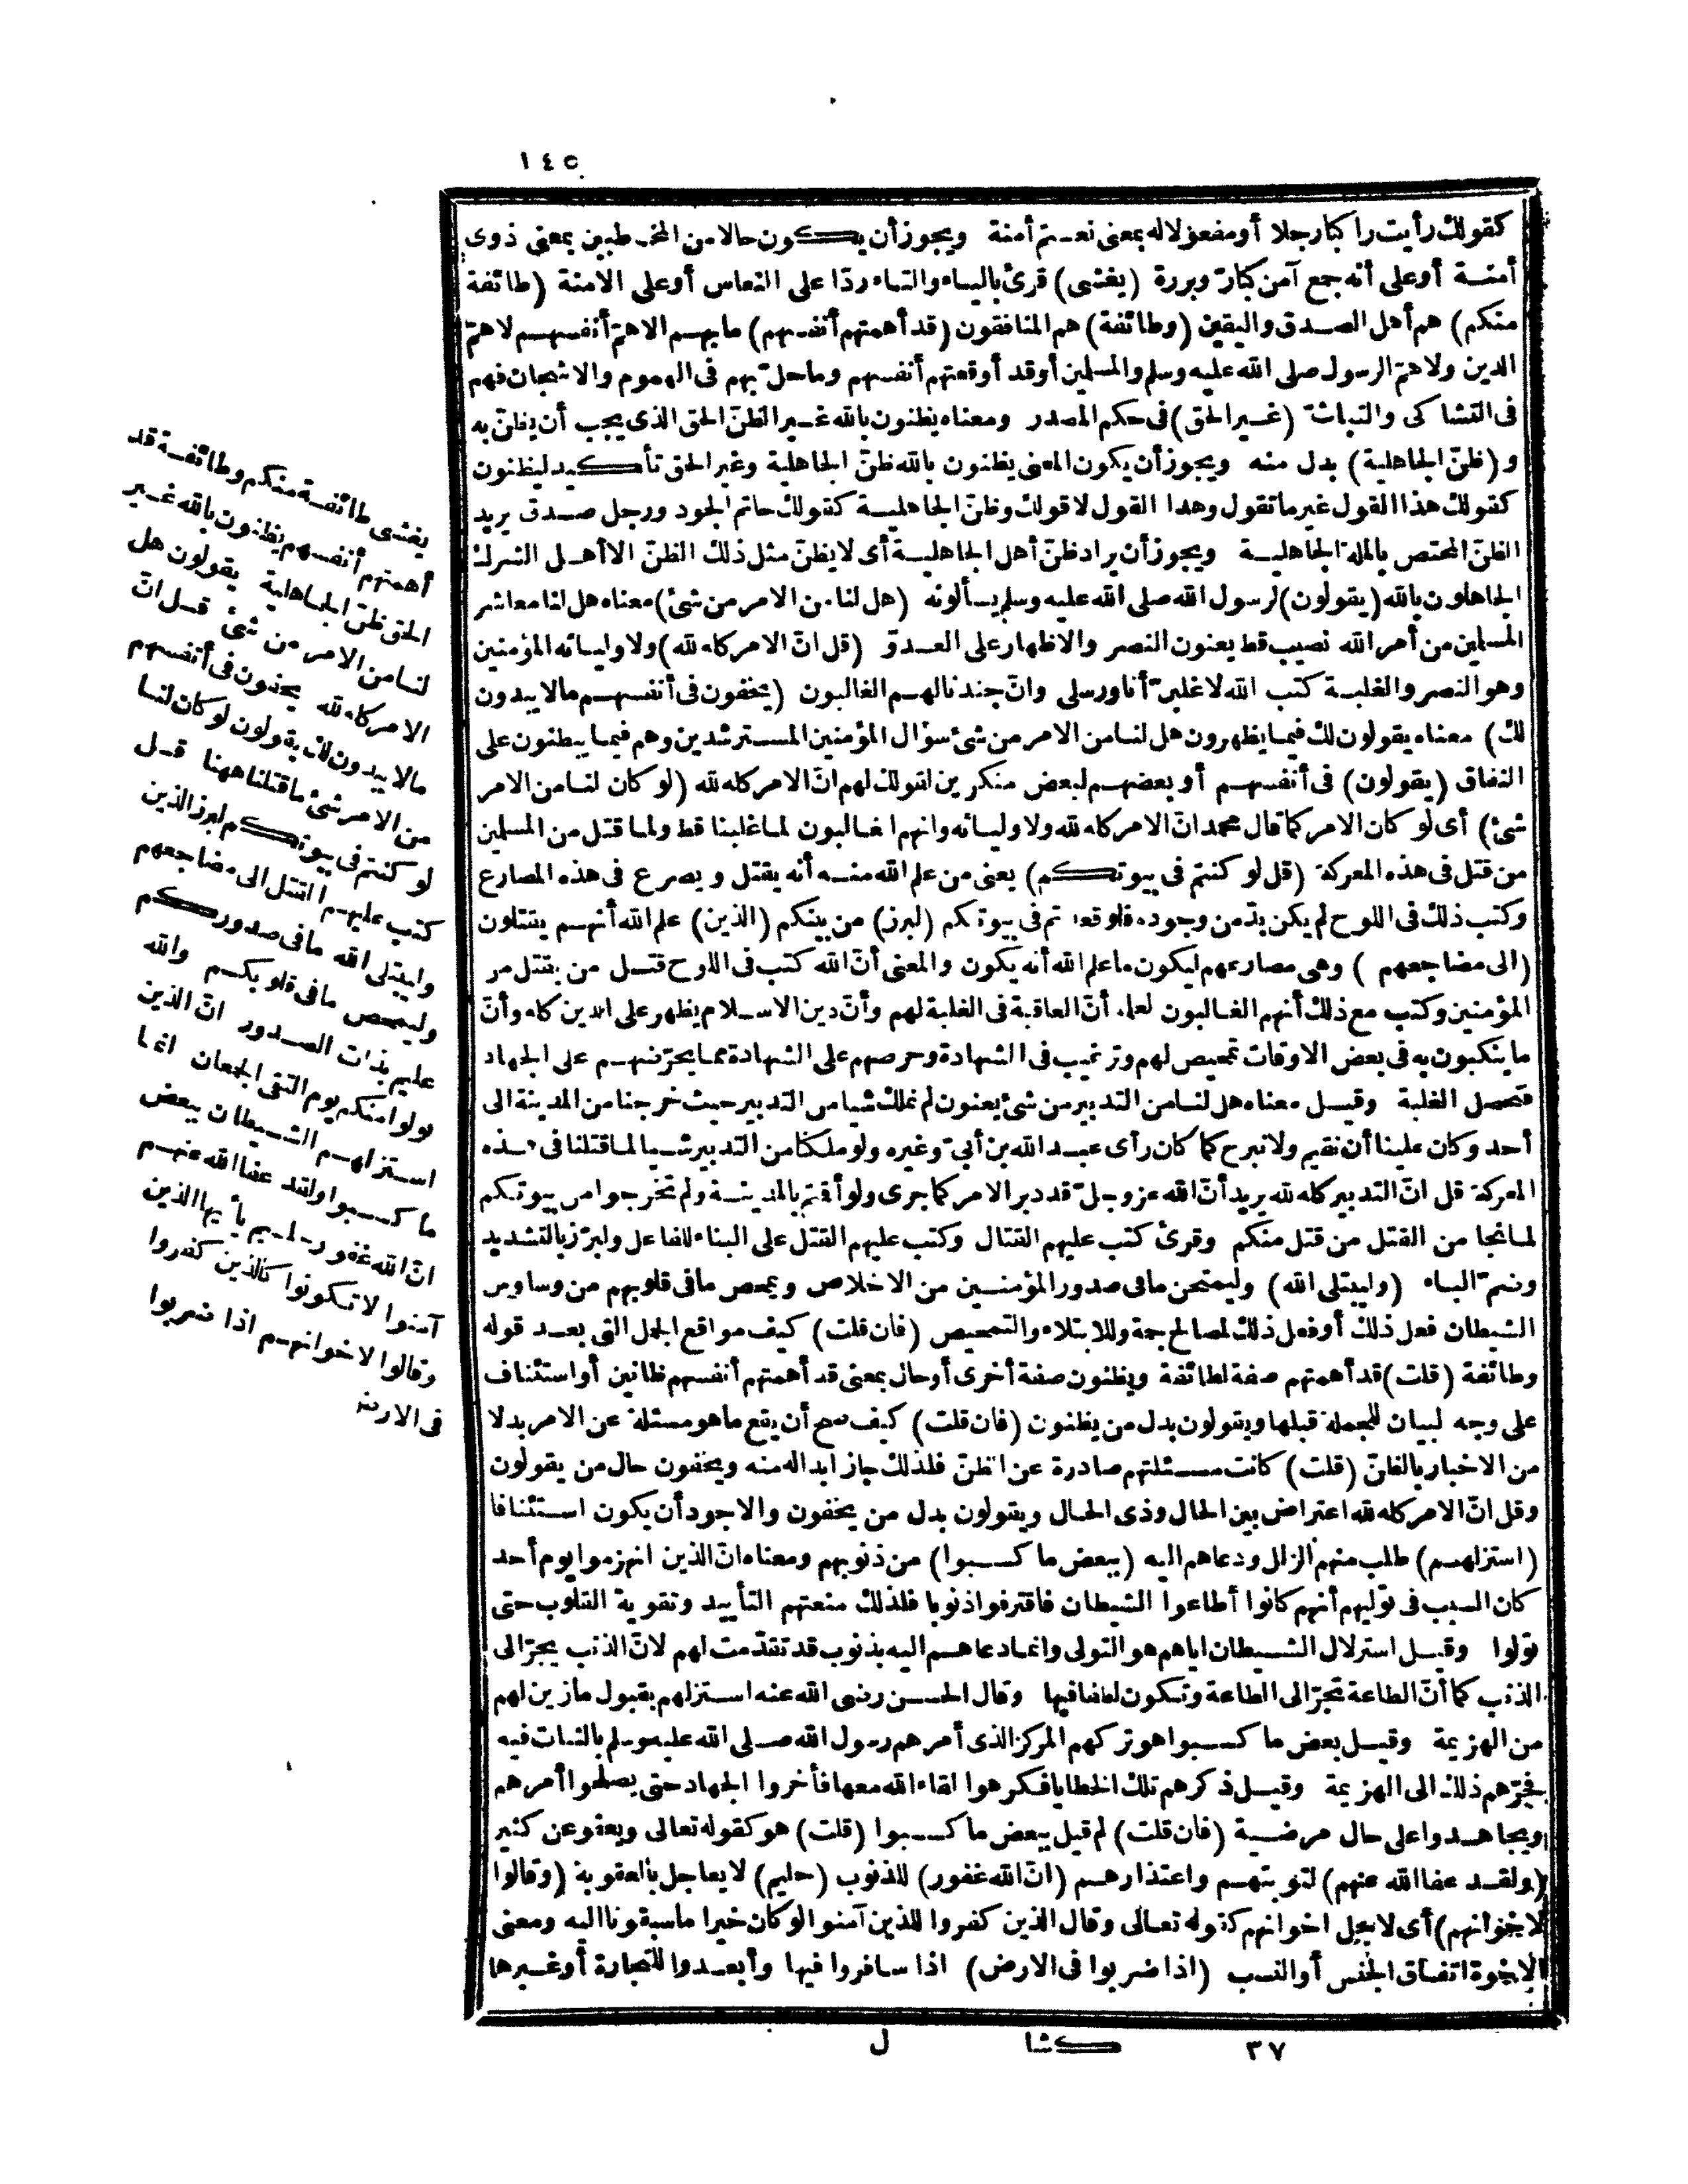 ١٤٥
كقولك رأيت راكبا رجلا أو مفعولا له بمعنى نعستم أمنة ويجوز أن يكون حالا من المخاطبين بمعنى ذوى
أمنة أو على أنه جمع آمن كبارّ وبررة (يغشى) قرئ بالياء والتاء ردّا على النعاس أو على الامنة (طائفة
منكم) هم أهل الصدق واليقين (وطائفة) هم المنافقون (قد أهمتهم أنفسهم) ما بهم الا همّ أنفسهم لا همّ
الدين ولا همّ الرسول صلى الله عليه وسلم والمسلمين أو قد أوقعتهم أنفسهم وما حلّ بهم فى الهموم والاشجان فهم
فى التشاكى والتباثّ (غير الحق) فى حكم المصدر ومعناه يظنون بالله غير الظنّ الحق الذى يجب أن يظنّ به
و(ظنّ الجاهلية) بدل منه ويجوز أن يكون المعنى يظنون بالله ظنّ الجاهلية وغير الحق تأكيد ليظنون
كقولك هذا القول غير ما تقول وهذا القول لا قولك وظنّ الجاهلية كقولك حاتم الجود ورجل صدق يريد
الظنّ المختص بالملة الجاهلية ويجوز أن يراد ظنّ أهل الجاهلية أى لا يظنّ مثل ذلك الظنّ الا أهل الشرك
الجاهلون بالله (يقولون) لرسول الله صلى الله عليه وسلم يسألونه (هل لنا من الامر من شئ) معناه هل لنا معاشر
المسلمين من أمر الله نصيب قط يعنون النصر والاظهار على العدوّ (قل انّ الامر كله لله) ولاوليائه المؤمنين
وهو النصر والغلبة كتب الله لاغلبنّ أنا ورسلى وانّ جندنا لهم الغالبون (يخفون فى أنفسهم ما لا يبدون
لك) معناه يقولون لك فيما يظهرون هل لنا من الامر من شئ سؤال المؤمنين المسترشدين وهم فيما يبطنون على
النفاق (يقولون) فى أنفسهم أو بعضهم لبعض منكرين لقولك لهم انّ الامر كله لله (لو كان لنا من الامر
شئ) أى لو كان الامر كما قال محمد انّ الامر كله لله ولاوليائه وانهم الغالبون لما غلبنا قط ولما قتل من المسلمين
من قتل فى هذه المعركة (قل لو كنتم فى بيوتكم) يعنى من علم الله منه أنه يقتل ويصرع فى هذه المصارع
وكتب ذلك فى اللوح لم يكن بدّ من وجوده فلو قعدتم فى بيوتكم (لبرز) من بينكم (الذين) علم الله أنهم يقتلون
(الى مضاجعهم) وهى مصارعهم ليكون ما علم الله أنه يكون والمعنى أنّ الله كتب فى اللوح قتل من يقتل من
المؤمنين وكتب مع ذلك أنهم الغالبون لعلمه أنّ العاقبة فى الغلبة لهم وأنّ دين الاسلام يظهر على الدين كله وأنّ
ما ينكبون به فى بعض الاوقات تمحيص لهم وترغيب فى الشهادة وحرصهم على الشهادة مما يحرّضهم على الجهاد
فتحصل الغلبة وقيل معناه هل لنا من التدبير من شئ يعنون لم نملك شيأ من التدبير حيث خرجنا من المدينة الى
أحد وكان علينا أن نقيم ولا نبرح كما كان رأى عبد الله بن أبىّ وغيره ولو ملكنا من التدبير شيأ لما قتلنا فى هذه
المعركة قل انّ التدبير كله لله يريد أنّ الله عز وجلّ قد دبر الامر كما جرى ولو أقمتم بالمدينة ولم تخرجوا من بيوتكم
لما نجا من القتل من قتل منكم وقرئ كتب عليهم القتال وكتب عليهم القتل على البناء للفاعل ولبرّز بالتشديد
وضم الباء (وليبتلى الله) وليمتحن ما فى صدور المؤمنين من الاخلاص ويمحص ما فى قلوبهم من وساوس
الشيطان فعل ذلك أو فعل ذلك لمصالح جمة وللابتلاء والتمحيص (فان قلت) كيف مواقع الجمل التى بعد قوله
وطائفة (قلت) قد أهمتهم صفة لطائفة ويظنون صفة أخرى أو حال بمعنى قد أهمتهم أنفسهم ظانين أو استئناف
على وجه البيان للجملة قبلها ويقولون بدل من يظنون (فان قلت) كيف صح أن يقع ما هو مسئلة عن الامر بدلا
من الاخبار بالظنّ (قلت) كانت مسئلتهم صادرة عن الظنّ فلذلك جاز ابداله منه ويخفون حال من يقولون
وقل انّ الامر كله لله اعتراض بين الحال وذى الحال ويقولون بدل من يخفون والاجود أن يكون استئنافا
(استزلهم) طلب منهم الزلل ودعاهم اليه (ببعض ما كسبوا) من ذنوبهم ومعناه انّ الذين انهزموا يوم أحد
كان السبب فى توليهم أنهم كانوا أطاعوا الشيطان فاقترفوا ذنوبا فلذلك منعتهم التأييد وتقوية القلوب حتى
تولوا وقيل استزلال الشيطان اياهم هو التولى وانما دعاهم اليه بذنوب قد تقدّمت لهم لانّ الذنب يجرّ الى
الذنب كما أنّ الطاعة تجرّ الى الطاعة وتكون لطفا فيها وقال الحسن رضى الله عنه استزلهم بقبول ما زين لهم
من الهزيمة وقيل بعض ما كسبوا هو تركهم المركز الذى أمرهم رسول الله صلى الله عليه وسلم بالثبات فيه
فجرّهم ذلك الى الهزيمة وقيل ذكرهم تلك الخطايا فكرهوا لقاء الله معها فأخروا الجهاد حتى يصلحوا أمرهم
ويجاهدوا على حال مرضية (فان قلت) لم قيل ببعض ما كسبوا (قلت) هو كقوله تعالى ويعفو عن كثير
(ولقد عفا الله عنهم) لتوبتهم واعتذارهم (انّ الله غفور) للذنوب (حليم) لا يعاجل بالعقوبة (وقالوا
لاخوانهم) أى لاجل اخوانهم كقوله تعالى وقال الذين كفروا للذين آمنوا لو كان خيرا ما سبقونا اليه ومعنى
الاخوة اتفاق الجنس أو النسب (اذا ضربوا فى الارض) اذا سافروا فيها وأبعدوا للتجارة أو غيرها
يغشى طائفة منكم وطائفة قد
أهمتهم أنفسهم يظنون بالله غير
الحق ظنّ الجاهلية يقولون هل
لنا من الامر من شئ قل انّ
الامر كله لله يخفون فى أنفسهم
ما لا يبدون لك يقولون لو كان لنا
من الامر شئ ما قتلنا ههنا قل
لو كنتم فى بيوتكم لبرز الذين
كتب عليهم القتل الى مضاجعهم
وليبتلى الله ما فى صدوركم
وليمحص ما فى قلوبكم والله
عليم بذات الصدور انّ الذين
تولوا منكم يوم التقى الجمعان انما
استزلهم الشيطان ببعض
ما كسبوا ولقد عفا الله عنهم
انّ الله غفور حليم يأيها الذين
آمنوا لا تكونوا كالذين كفروا
وقالوا لاخوانهم اذا ضربوا
فى الارض
٣٧ كشا ل